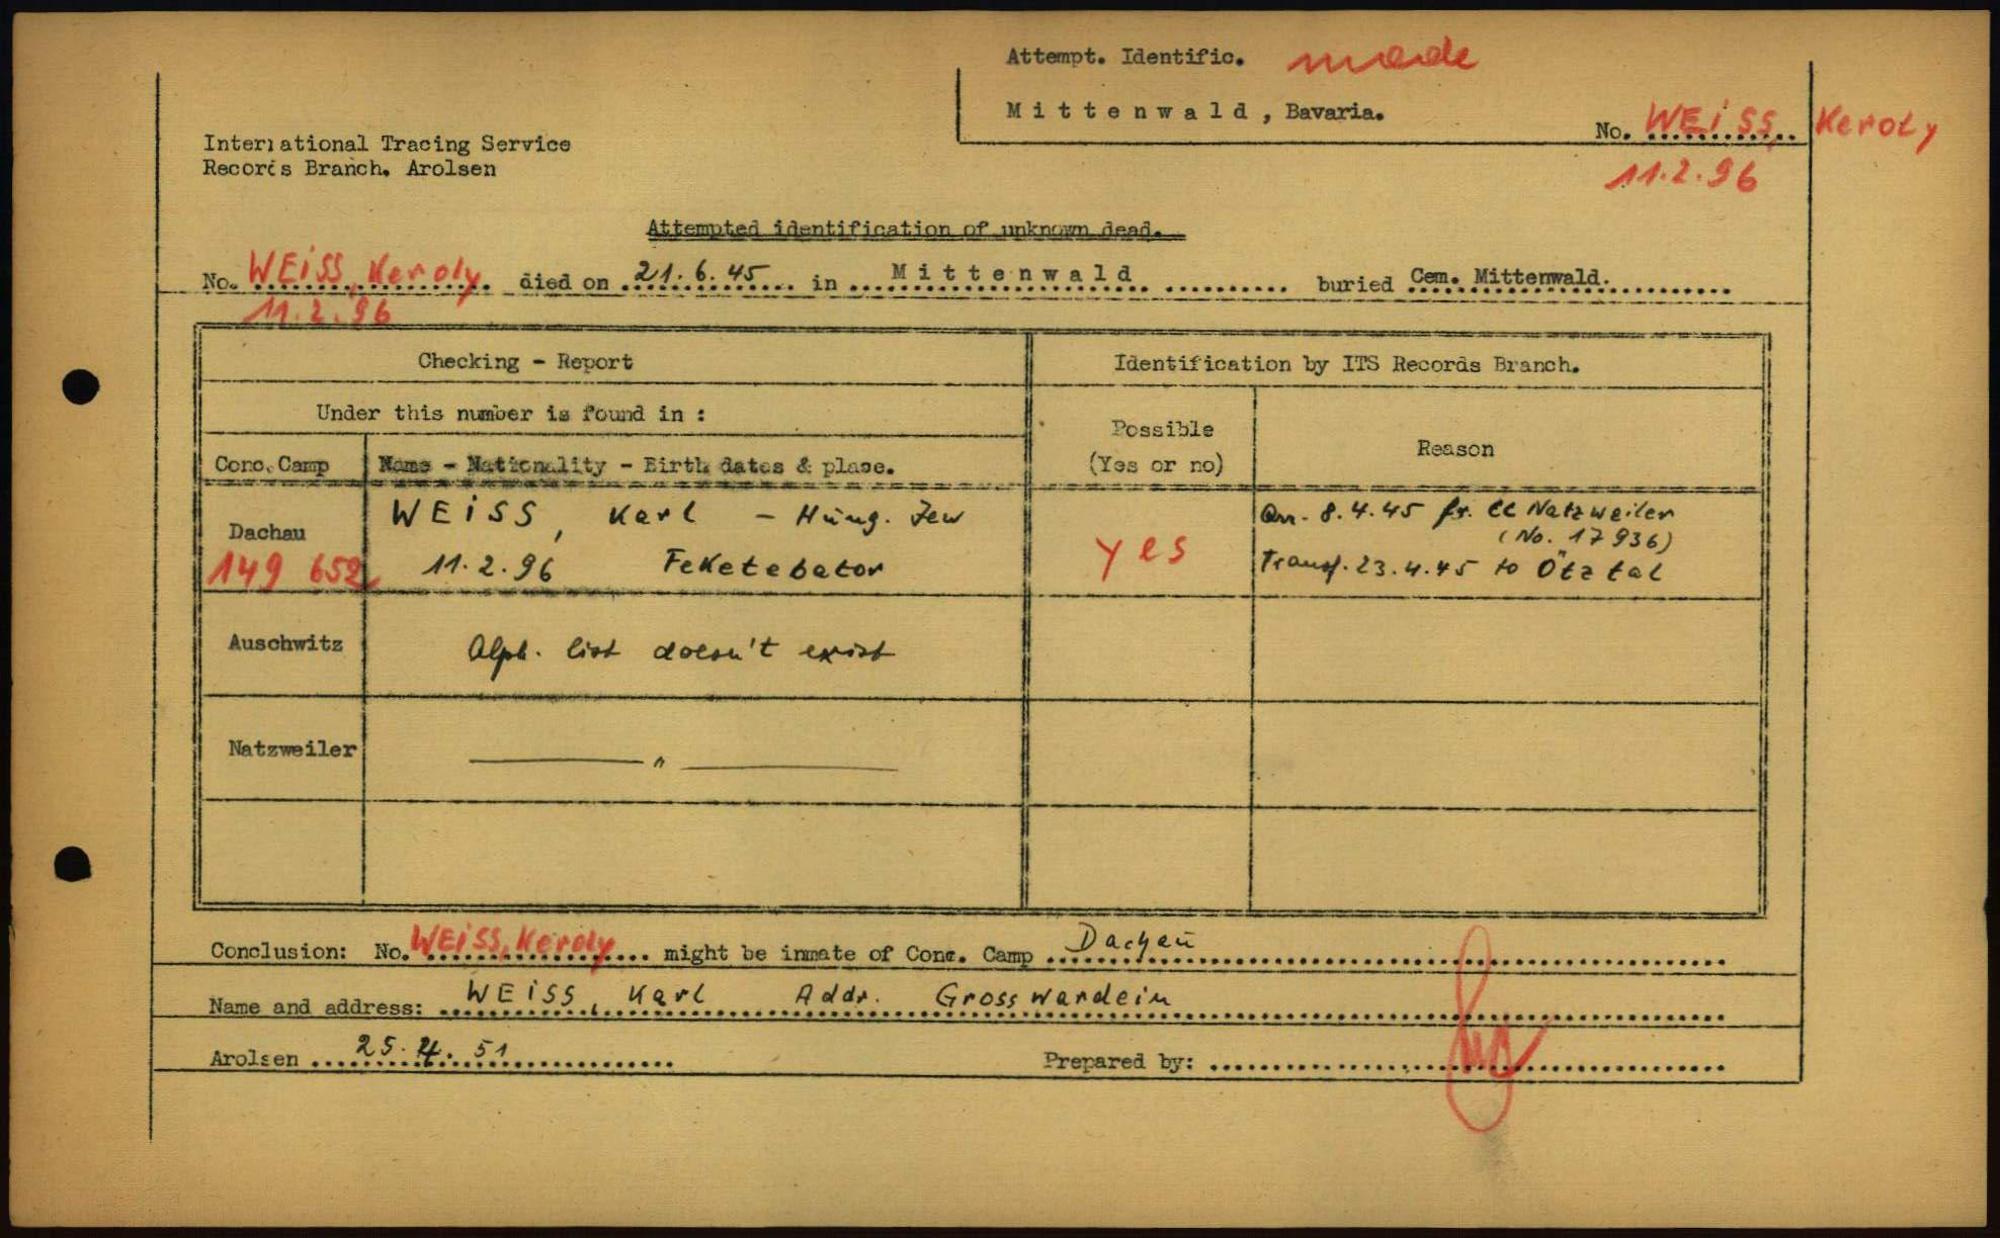 Attempt. Identific. made
Mittenwald, Bavaria.
No. WEiSS, Keroly
11.2.96
International Tracing Service
Records Branch. Arolsen
Attempted identification of unknown dead.
No. WEiSS, Keroly died on 21.6.45 in Mittenwald buried Cem. Mittenwald.
11.2.96
Checking - Report
Identification by ITS Records Branch.
Under this number is found in :
Possible
(Yes or no)
Reason
Conc. Camp
Name - Nationality - Birth dates & place.
Dachau
149 652
WEiSS, Karl - Hung. Jew
11.2.96 Feketebator
yes
Arr. 8.4.45 fr. CC Natzweiler
(No. 17936)
Transf. 23.4.45 to Ötztal
Auschwitz
Alph. list doesn't exist
Natzweiler
"
Conclusion: No. WEiSS, Keroly might be inmate of Conc. Camp Dachau
Name and address: WEiSS, Karl Addr. Grosswardein
Arolsen 25.4.51
Prepared by: